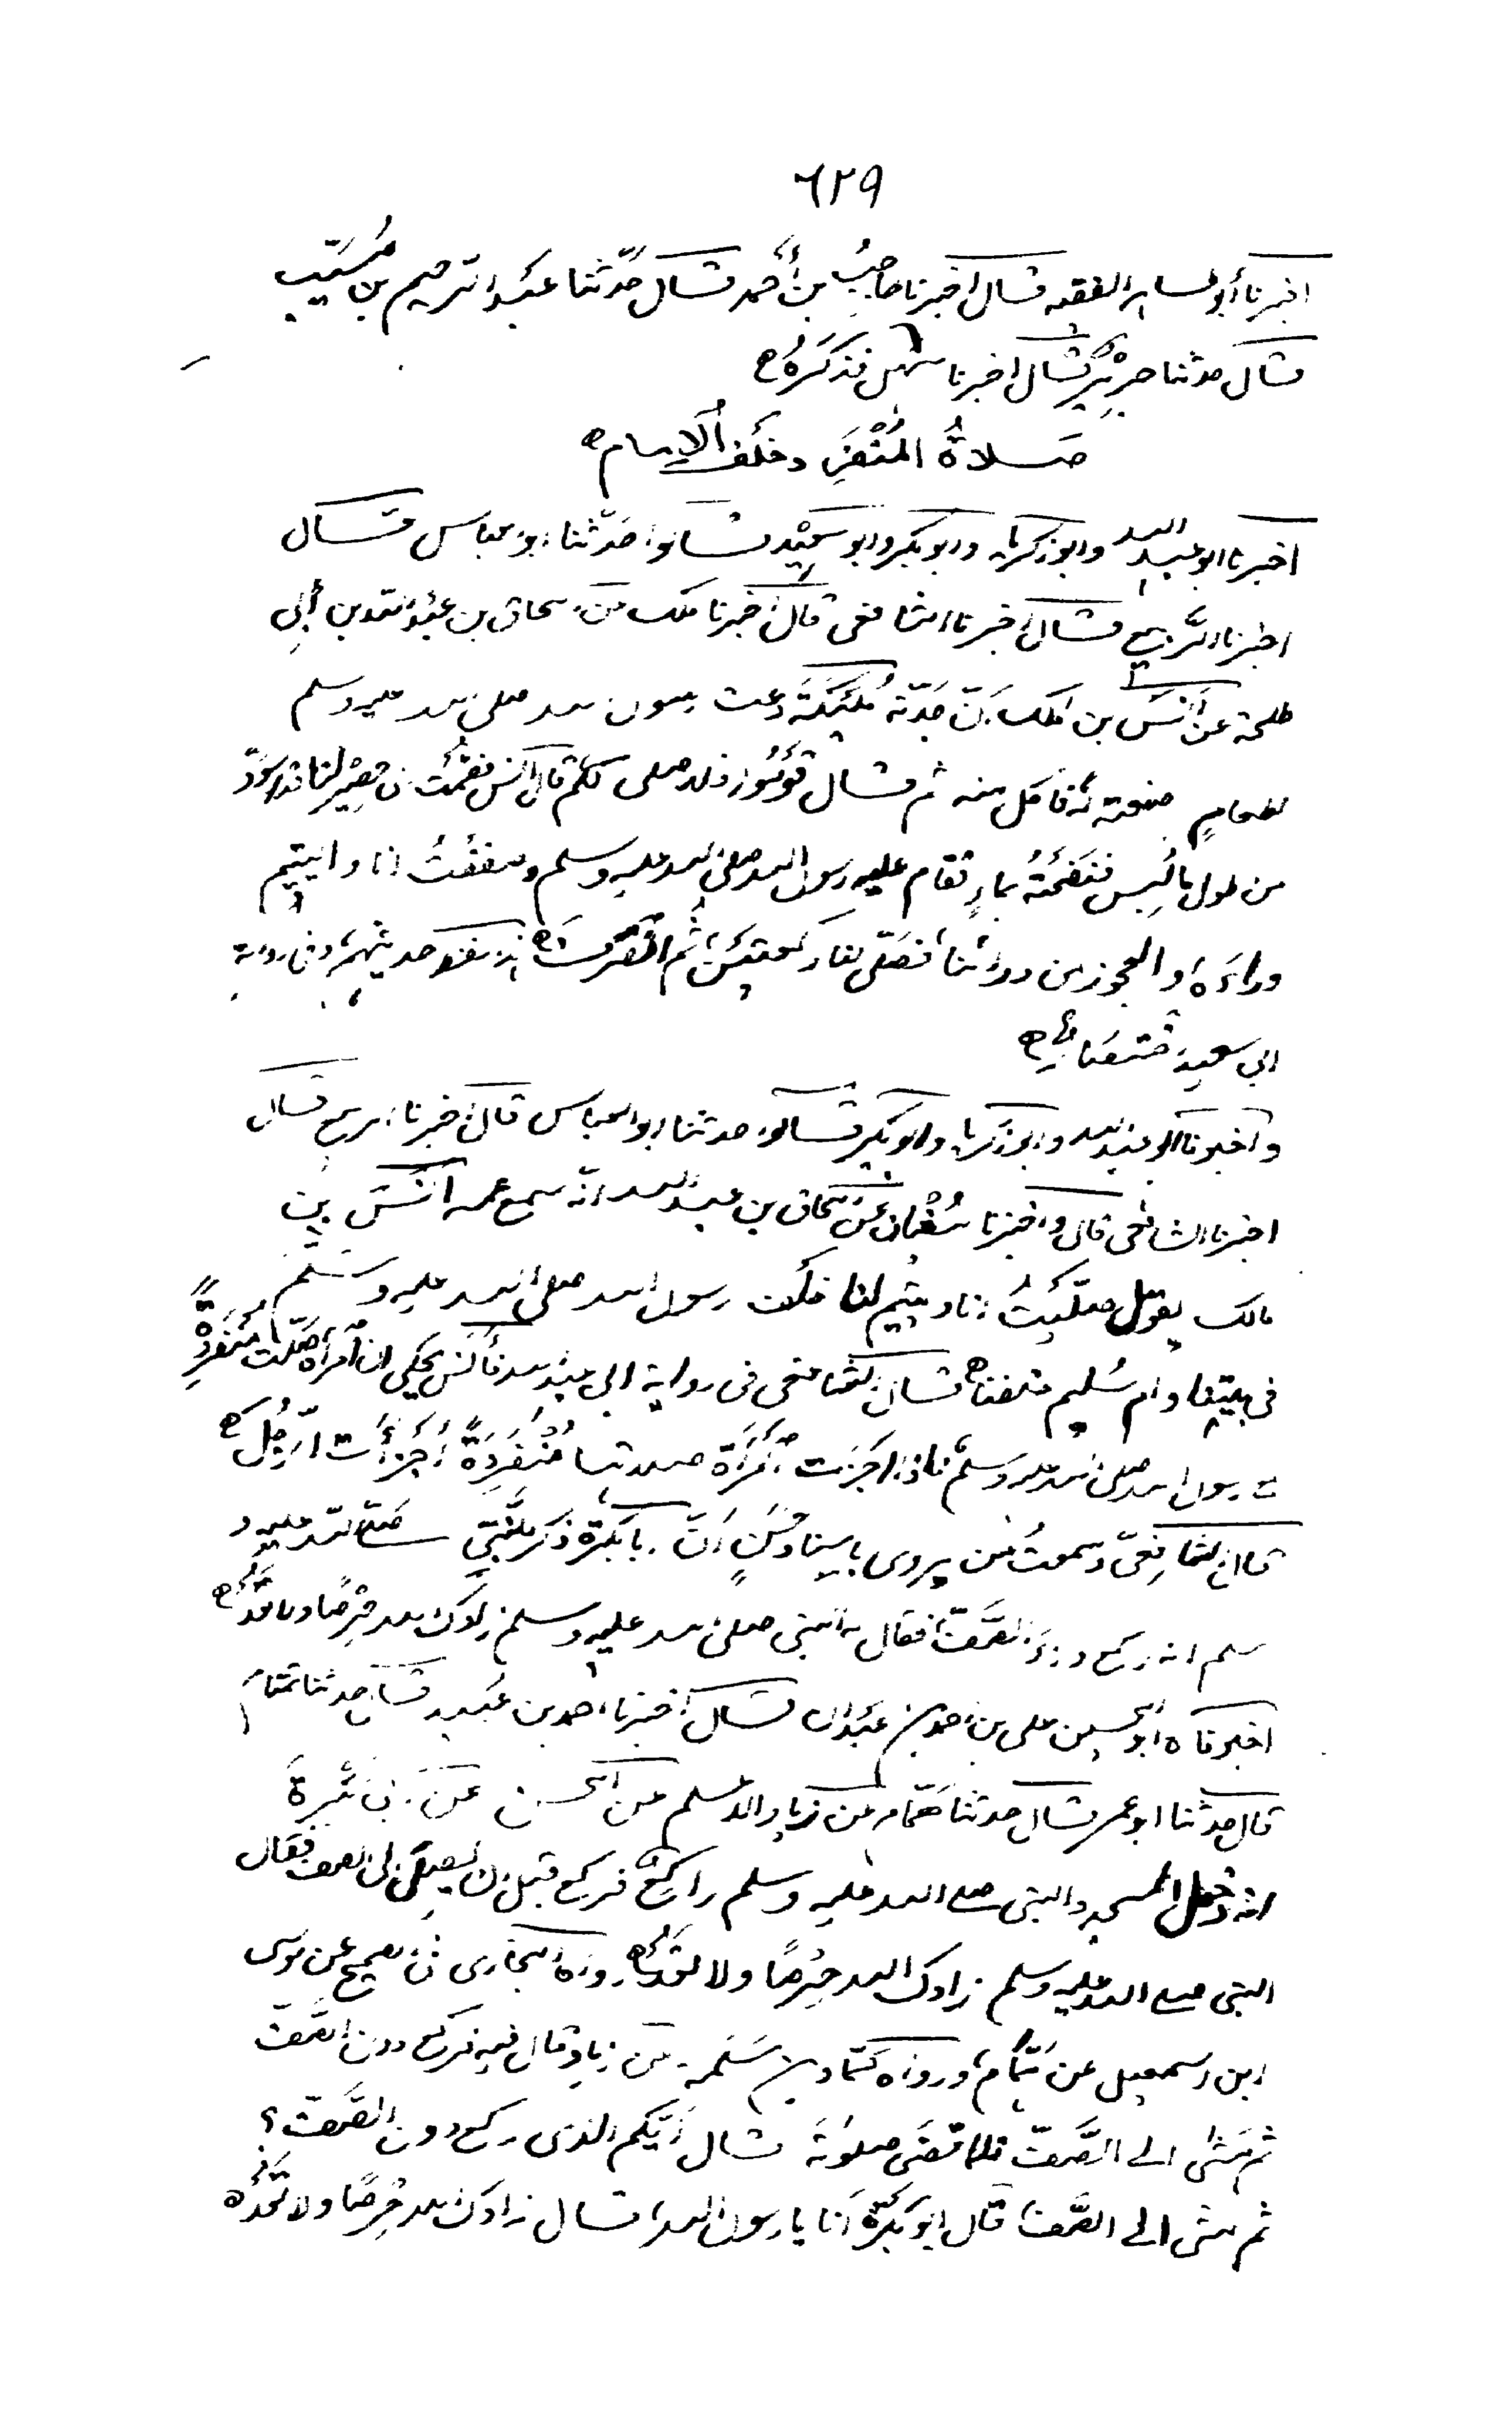 ٦٢٩
اخبرنا أبو طاهر الفقيه قال اخبرنا حاجب بن أحمد قال حدّثنا عبد الرحيم بن مُنيب
قال حدثنا جرير قال اخبرنا سهل فذكره
صلاةُ المُنْفَرِد خلف الامام
اخبرنا ابو عبد الله وابو زكريا وابو بكر وابو سعيد قالوا حدّثنا ابو العباس قال
اخبرنا الرَّبيع قال اخبرنا الشافعى قال اخبرنا ملك عن اسحاق بن عبد الله بن أبي
طلحة عن أنس بن مالك انّ جدّته مُلَيكة دعت رسول الله صلى الله عليه وسلم
لطعامٍ صنعته له فاكل منه ثم قال قوموا فلاصلى لكم قال انس فقمت الى حصير لنا قد اسودّ
من طول ما لُبِس فنضحته بماءٍ فقام عليه رسول الله صلى الله عليه وسلم وصففتُ انا واليتيم
وراءه والعجوز من ورائنا فصلّى لنا ركعتين ثم انصرف لفظ حديثهم وفى رواية
ابي سعيد
واخبرنا ابو عبد الله وابو زكريا وابو بكر قالوا حدثنا ابو العباس قال اخبرنا الربيع قال
اخبرنا الشافعى قال واخبرنا سُفيان عن اسحاق بن عبد الله انّه سمع عمه أنس بن
مالك يقول صلّيتُ انا ويتيم لنا خلف رسول الله صلى الله عليه وسلم
فى بيتنا وام سُليم خلفنا قال الشافعى فى رواية ابى عبد الله فأنس يحكى ان امرأة صلّت مُنفردةً
مع رسول الله صلى الله عليه وسلم فاذا اجزت امرأة صلاتها مُنفردةً أجزأت الرجل
قال الشافعىّ وسمعتُ من يروى باسنادٍ حسنٍ أنّ أبا بكرة ذكر للنبى صلى الله عليه و
سلم انه ركع دون الصَّفّ فقال له النبى صلى الله عليه وسلم زادك الله حِرْصًا ولا تَعُدْ
اخبرناه ابو الحسين على بن احمد بن عبدان قال أخبرنا احمد بن عبيد قال حدثنا تمتام
قال حدثنا ابو عمر قال حدثنا همّام عن زياد الاعلم عن الحسن عن أبى بكرة
انّه دخل المسجد والنبى صلى الله عليه وسلم راكع فركع قبل ان يصل الى الصف فقال
النبى صلى الله عليه وسلم زادك الله حِرْصًا ولا تَعُدْ رواه البخارى فى الصحيح عن موسى
ابن اسمعيل عن همّام ورواه حمّاد بن سَلَمة عن زياد وقال فيه فركع دون الصَّفّ
ثم مشى الى الصَّفّ فلما قضى صلوته قال أيّكم الذى ركع دون الصَّفّ؟
ثم مشى الى الصَّف قال ابو بكرة أنا يا رسول الله قال زادك الله حِرصًا ولا تَعُدْ